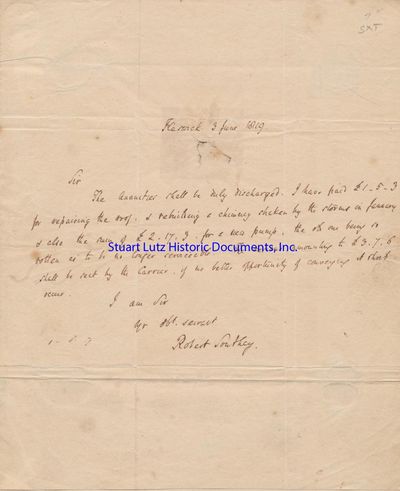 SXT
Keswick 3 June 1819
Sir
The annuities shall be duly discharged. I have paid £1-5-3
for repairing the roof, & rebuilding a chimney shaken by the storms in January
& also the sum of £2.17.3. for a new pump, the old one being so
Stuart Lutz Historic Documents, Inc.
rotten as to be no longer serviceable. amounting to £3.7.6
shall be sent by the Carrier, if no better opportunity of conveying it should
occur.
I am Sir
yr obt. servant
Robert Southey.